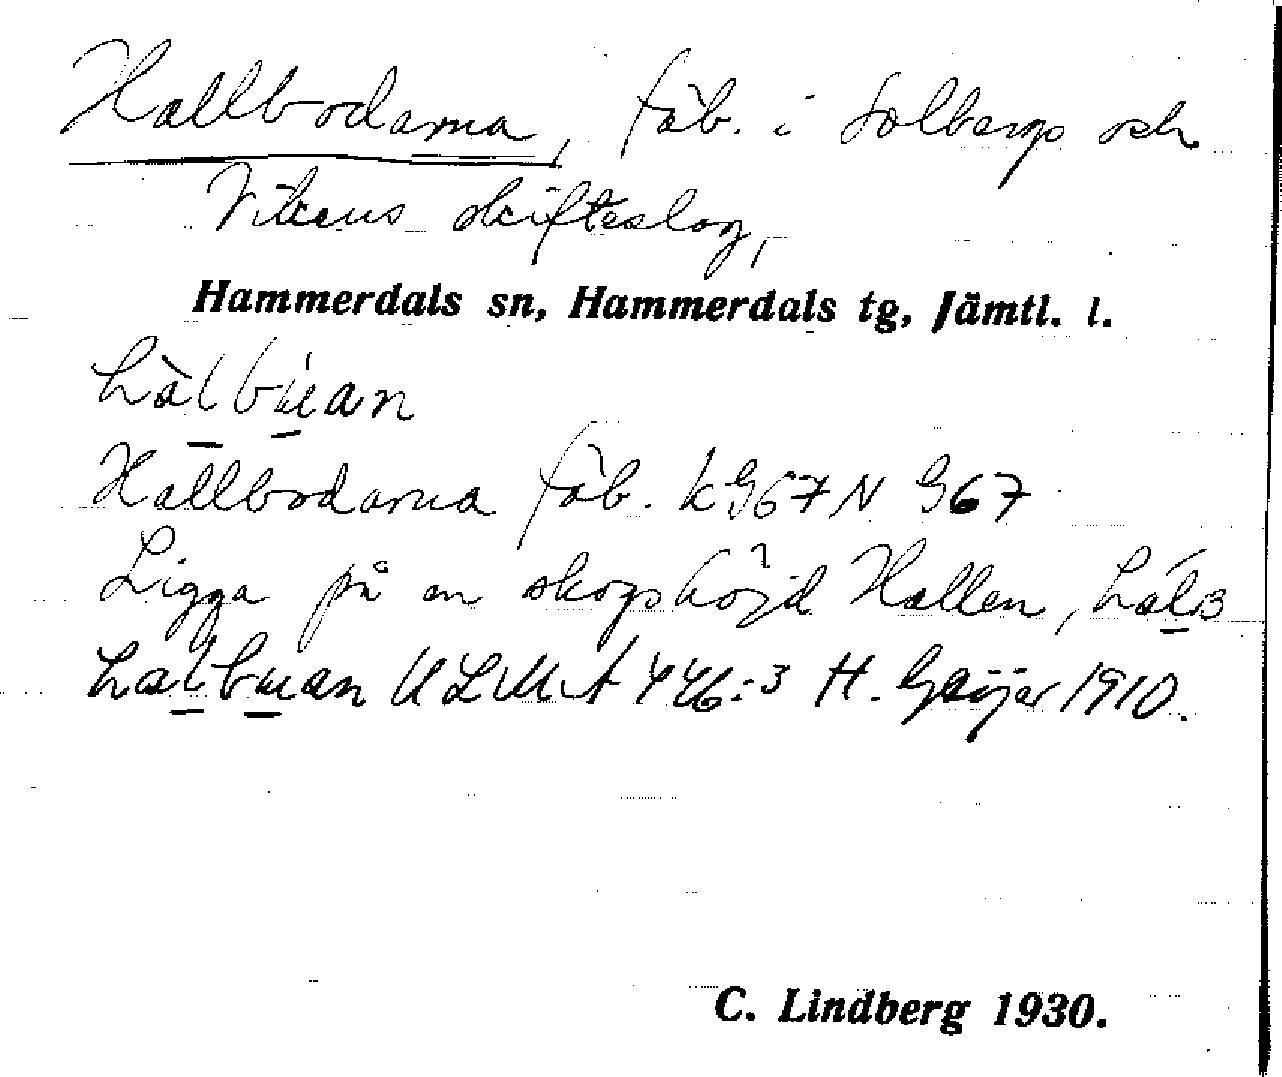 Hallbodarna, fäb. i Solbergs och
Vikens skifteslag,
Hammerdals sn, Hammerdals tg, Jämtl. l.
hàlbu̇an
Hallbodarna fäb. k G67 N G67
Ligga på en skogshöjd Hallen,
halbuan ULMA 446:3 H. Geijer 1910.
C. Lindberg 1930.